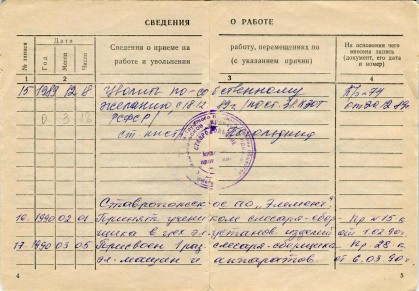 СВЕДЕНИЯ О РАБОТЕ
№ записи
Дата
Год
Месяц
Число
Сведения о приеме на работу, перемещениях по
работе и увольнении (с указанием причин)
На основании чего
внесена запись
(документ, его дата
и номер)
1 2 3 4
15 1989 12 18 Уволить по собственному Пр-74
желанию с 18 12 89г /пост. КЗОТ от 20.12.89
РСФСР/
ст. инсп.
Ставропольское по „Элемент"
16 1990 02 01 Принят учеником слесаря-сбор- Пр. №15 к
щика в цех эл. установ. изделий от 1.02.90г.
17 1990 03 05 Присвоен 1 раз. слесаря-сборщика Пр. 28 к
эл. машин и аппаратов. от 6.03.90г.
4 5